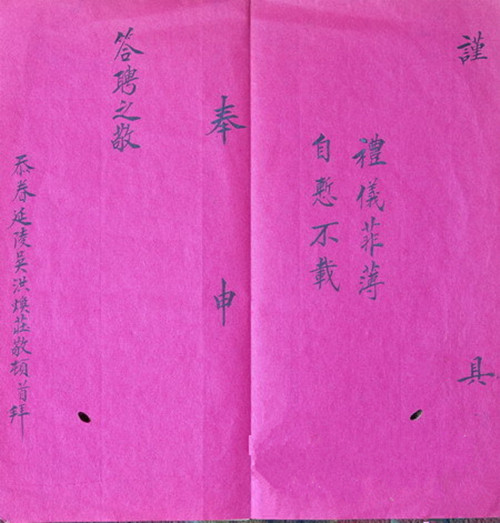 謹具
禮儀菲薄
自慙不載
奉申
答聘之敬
忝眷延陵吳洪煥莊敬頓首拜